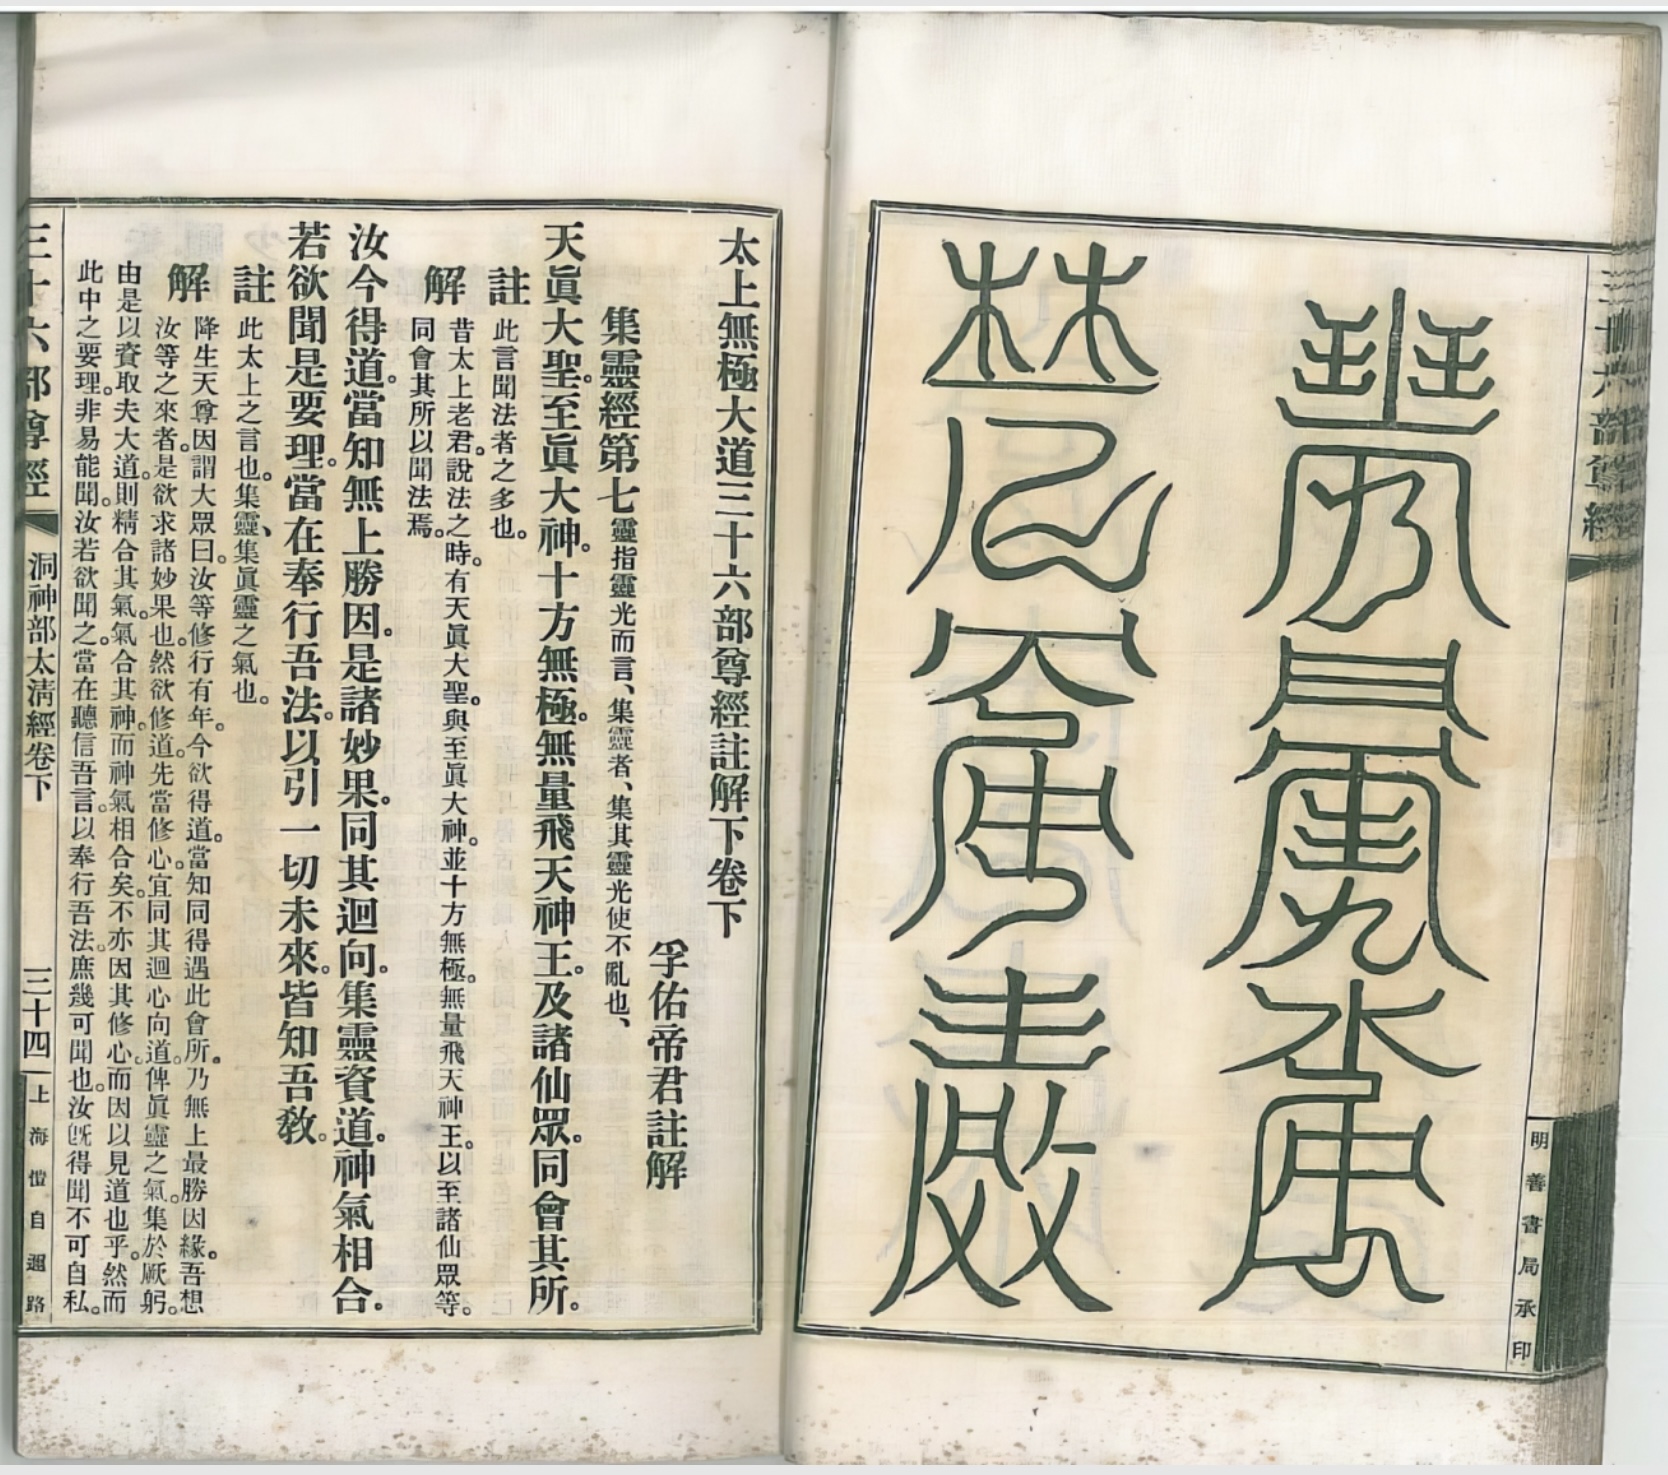 明善書局承印
太上無極大道三十六部尊經註解下卷下
孚佑帝君註解
集靈經第七靈指靈光而言、集靈者、集其靈光使不亂也、
天眞大聖。至眞大神。十方無極。無量飛天神王。及諸仙眾。同會其所。
註 此言聞法者之多也。
解 昔太上老君。說法之時。有天眞大聖。與至眞大神。並十方無極。無量飛天神王。以至諸仙眾等。
同會其所以聞法焉。
汝今得道。當知無上勝因。是諸妙果。同其迴向。集靈資道。神氣相合。
若欲聞是要理。當在奉行吾法。以引一切未來。皆知吾教。
註 此太上之言也。集靈、集眞靈之氣也。
解 降生天尊因謂大眾曰。汝等修行有年。今欲得道。當知同得遇此會所。乃無上最勝因緣。吾想
汝等之來者。是欲求諸妙果也。然欲修道。先當修心。宜同其迴心向道。俾眞靈之氣。集於厥躬。
由是以資取夫大道。則精合其氣。氣合其神。而神氣相合矣。不亦因其修心。而因以見道也乎。然而
此中之要理。非易能聞。汝若欲聞之。當在聽信吾言。以奉行吾法。庶幾可聞也。汝旣得聞不可自私。
三十六部尊經 洞神部太清經卷下 三十四 上海愷自邇路